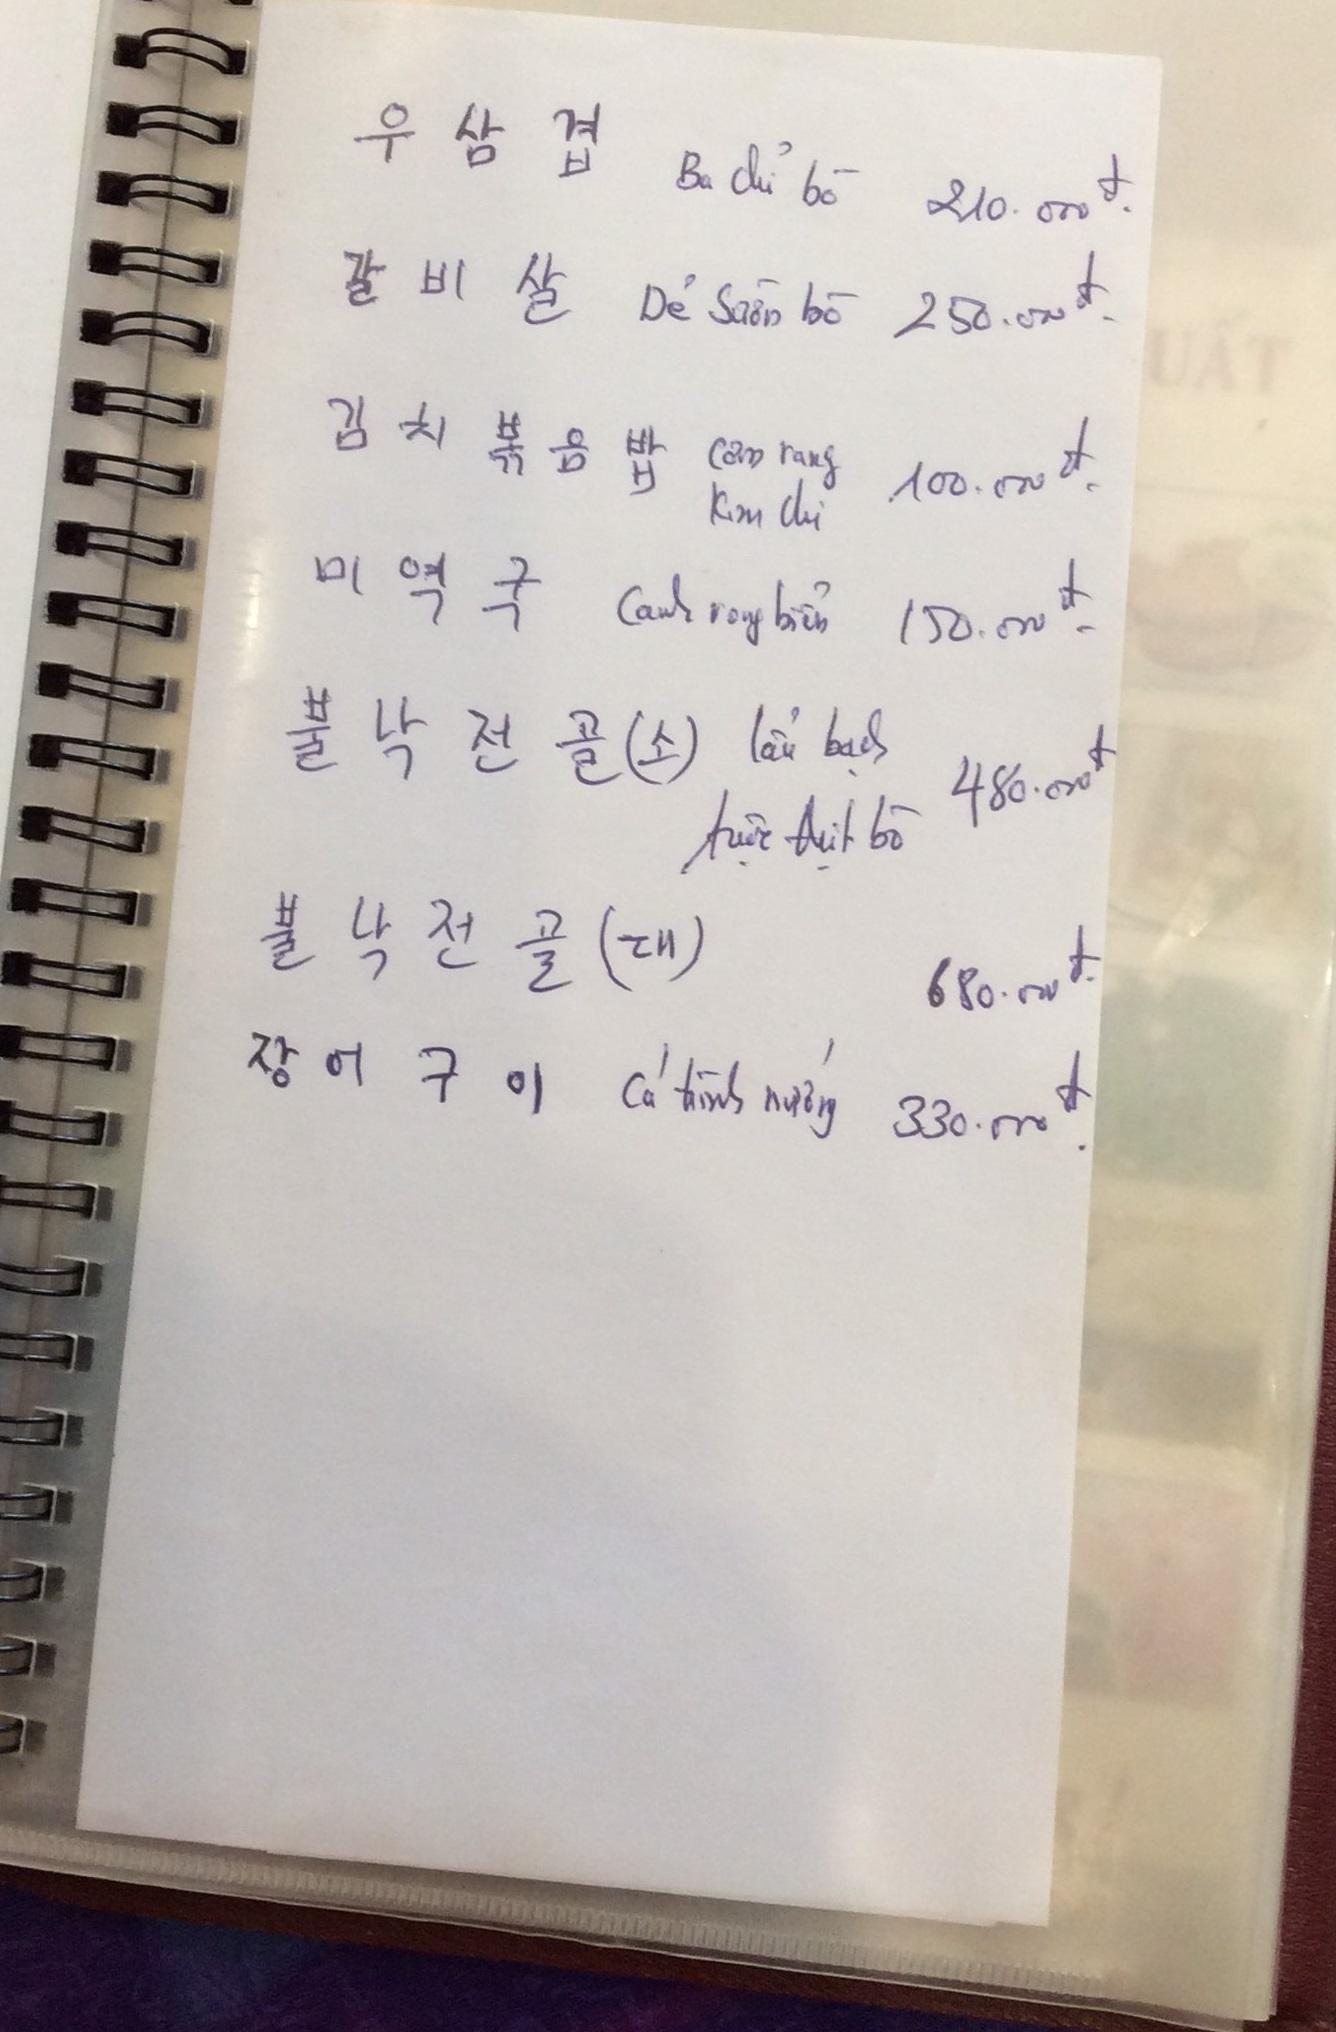 우삼겹 Ba chỉ bò 210.000đ.
갈비살 Dẻ Sườn bò 250.000đ.
김치볶음밥 cơm rang 100.000đ.
Kim chi
미역국 Canh rong biển 150.000đ.
뿔낙전골(소) lẩu bạch 480.000đ
tuộc thịt bò
뿔낙전골(대) 680.000đ.
장어구이 Cá trình nướng 330.000đ.
UẤT